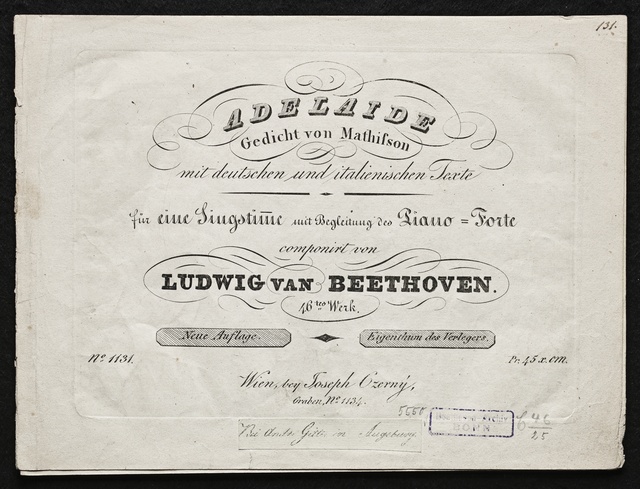 131.
ADELAIDE
Gedicht von Mathiſson
mit deutschen und italienischen Texte
für eine Singstim̅e mit Begleitung des Piano = Forte
componirt von
LUDWIG VAN BEETHOVEN.
46tes Werk.
Neue Auflage. Eigenthum des Verlegers.
No. 1131. Pr. 45 x. cm.
Wien, bey Joseph Czerný,
Graben, No. 1134.
5650
in Augsburg.
BONN
46
25